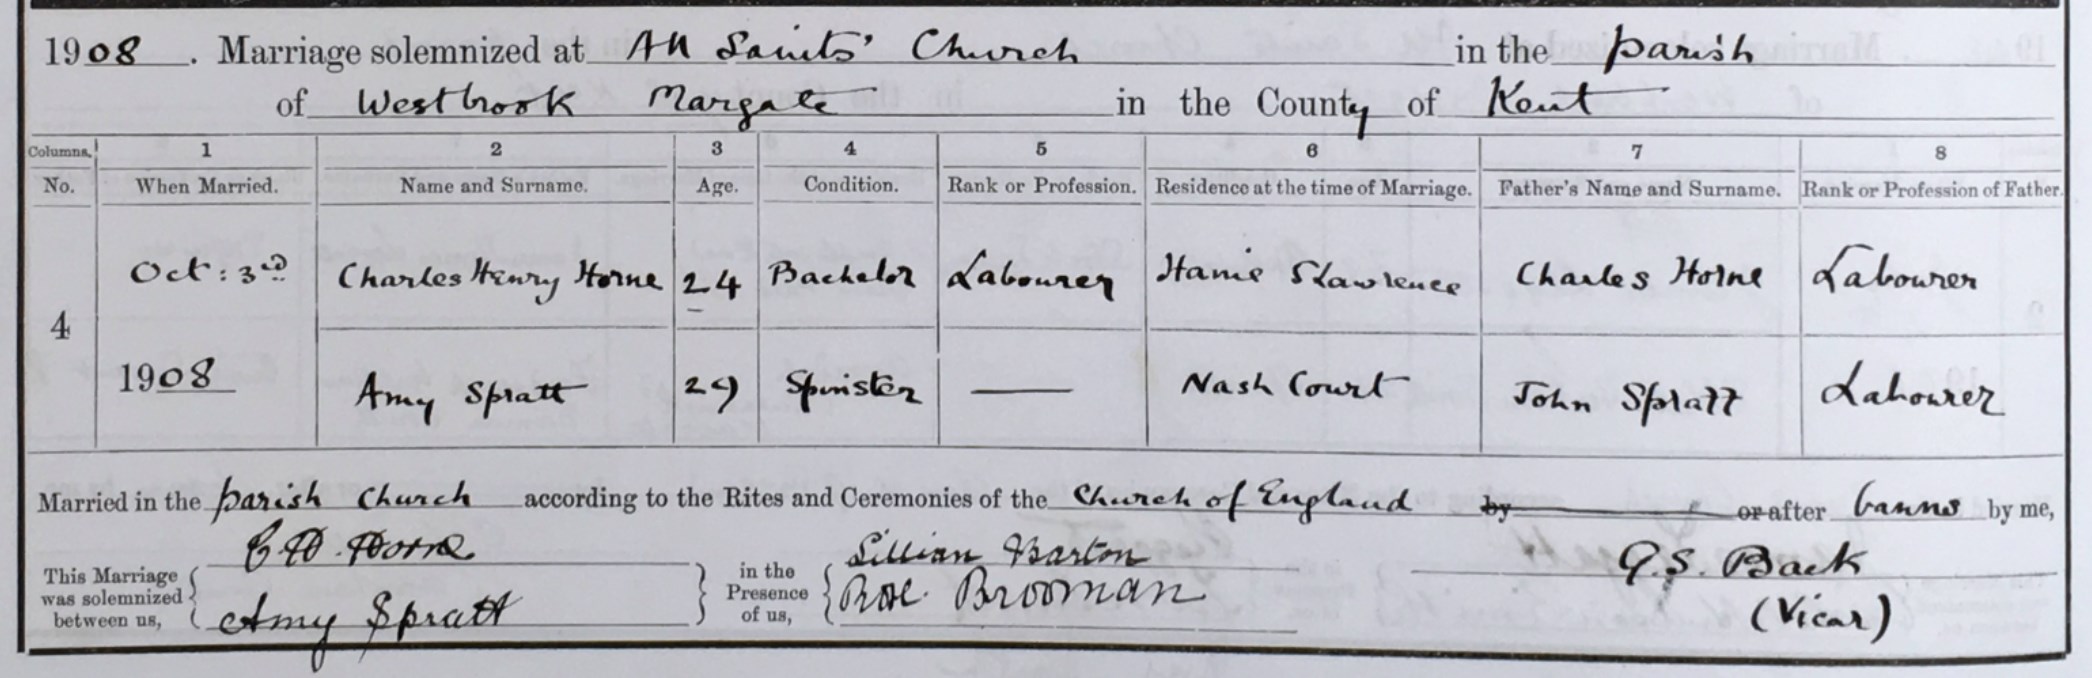 1908. Marriage solemnized at All Saints' Church in the parish
of Westbrook Margate in the County of Kent
Columns. 1 2 3 4 5 6 7 8
No. When Married. Name and Surname. Age. Condition. Rank or Profession. Residence at the time of Marriage. Father's Name and Surname. Rank or Profession of Father.
Oct: 3rd Charles Henry Horne 24 Bachelor Labourer St Lawrence Charles Horne Labourer
4
1908 Amy Spratt 29 Spinster — Nash Court John Spratt Labourer
Married in the parish Church according to the Rites and Ceremonies of the Church of England by or after banns by me,
This Marriage was solemnized between us, C. H. Horne
Amy Spratt
in the Presence of us, Lillian Barton
Brooman
G. S. Back
(Vicar)